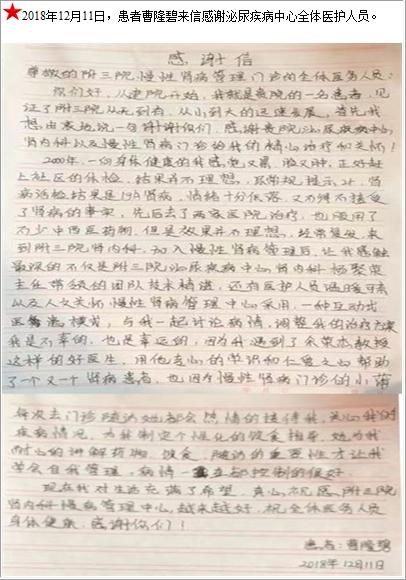 ★2018年12月11日，患者曹隆碧来信感谢泌尿疾病中心全体医护人员。
感谢信
尊敬的附三院，慢性肾病管理门诊的全体医务人员：
你们好，从建院开始，我就是贵院的一名患者，见
证了附三院从无到有，从小到大的迅速发展，首先我
想由衷地说一句谢谢你们，感谢贵院泌尿疾病中心
肾内科以及慢性肾病门诊给我的精心治疗和关怀！
2000年，一向身体健康的我感觉又累，脸又肿，正好赶
上社区的体检，结果并不理想，尿常规提示2+，肾
病活检结果是IgA肾病，情绪十分低落，又不得不接受
了肾病的事实，先后去了两家医院治疗，也服用了
不少中西医药物，但是效果并不理想，经常复发，来
到附三院肾内科，加入慢性肾病管理后，让我感触
最深的不仅是附三院泌尿疾病中心肾内科杨聚荣
主任带领的团队技术精湛，还有医护人员温暖可亲
以及人文关怀，慢性肾病管理中心采用，一种互动式
模式，与我一起讨论病情，调整我的治疗方案
我是不幸的，也是幸运的，因为我遇到了杨教授
这样的好医生，用他专心的学识和仁爱之心帮助
了一个又一个肾病患者，也因为慢性肾病门诊的小蒲
每次去门诊随访她都会热情的接待我，关心我的
疾病情况，为我制定个性化的饮食指导，她为我
耐心的讲解药物，饮食，随访的重要性才让我
学会自我管理，病情一直都控制的很好。
现在我对生活充满了希望，真心祝愿，附三院
肾内科慢病管理中心越来越好，祝全体医务人员
身体健康，感谢你们！
患者：曹隆碧
2018年12月11日